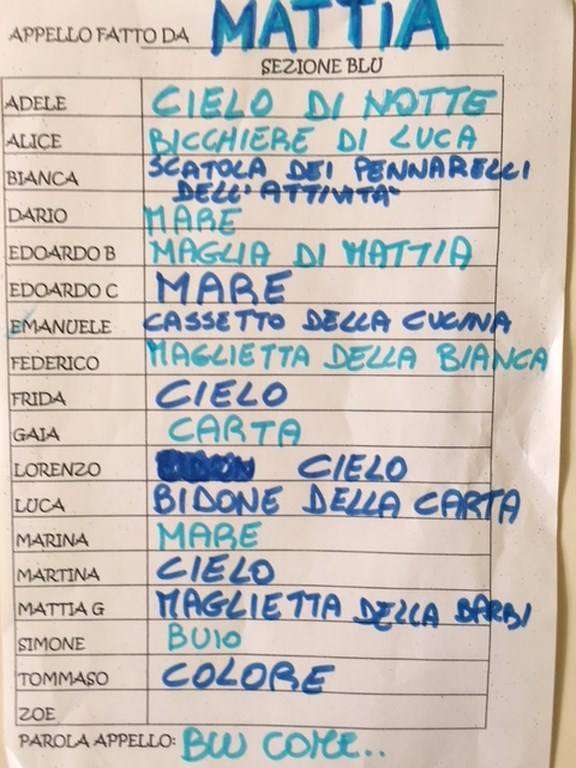 APPELLO FATTO DA MATTIA
SEZIONE BLU
ADELE CIELO DI NOTTE
ALICE BICCHIERE DI LUCA
BIANCA SCATOLA DEI PENNARELLI
DELL'ATTIVITA'
DARIO MARE
EDOARDO B MAGLIA DI MATTIA
EDOARDO C MARE
EMANUELE CASSETTO DELLA CUCINA
FEDERICO MAGLIETTA DELLA BIANCA
FRIDA CIELO
GAIA CARTA
LORENZO CIELO
LUCA BIDONE DELLA CARTA
MARINA MARE
MARTINA CIELO
MATTIA G MAGLIETTA DELLA BARBI
SIMONE BUIO
TOMMASO COLORE
ZOE
PAROLA APPELLO: BLU COME..